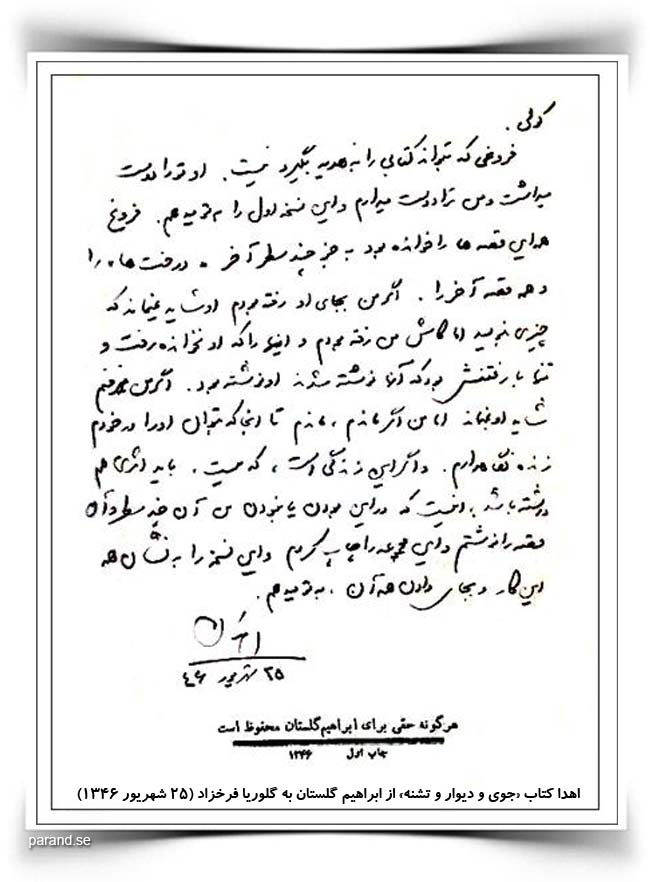 گولی.
فروغی که بتواند کتابی را به هدیه بگیرد نیست. او تو را دوست
میداشت و من ترا دوست میدارم و این نسخه اول را به تو میدهم. فروغ
همه این قصه ها را خوانده بود به جز چند سطر آخر «درخت ها» را
و همه قصه آخر را. اگر من بجای او رفته بودم او شاید نمیماند که
چیزی نبود اما کاش من رفته بودم و اینها را که او نخوانده رفت و
تنها با رفتنش بود که آنها نوشته شدند او نوشته بود. اگر من میرفتم
شاید او نمیماند اما من اگر ماندم، ماندم تا آنجا که بتوان او را در خودم
زنده نگاهدارم. و اگر این زندگی است، که هست، باید اثری هم
داشته باشد. اینست که در این بودن یا نبودن من آن چند سطر و آن
قصه را نوشتم و این مجموعه را چاپ کردم و این نسخه را به نشان همه
این کار و بجای دادن همه آن، به تو میدهم.
۲۵ شهریور ۴۶
هرگونه حقی برای ابراهیم گلستان محفوظ است
چاپ اول ۱۳۴۶
اهدا کتاب «جوی و دیوار و تشنه» از ابراهیم گلستان به گلوریا فرخزاد (۲۵ شهریور ۱۳۴۶)
parand.se